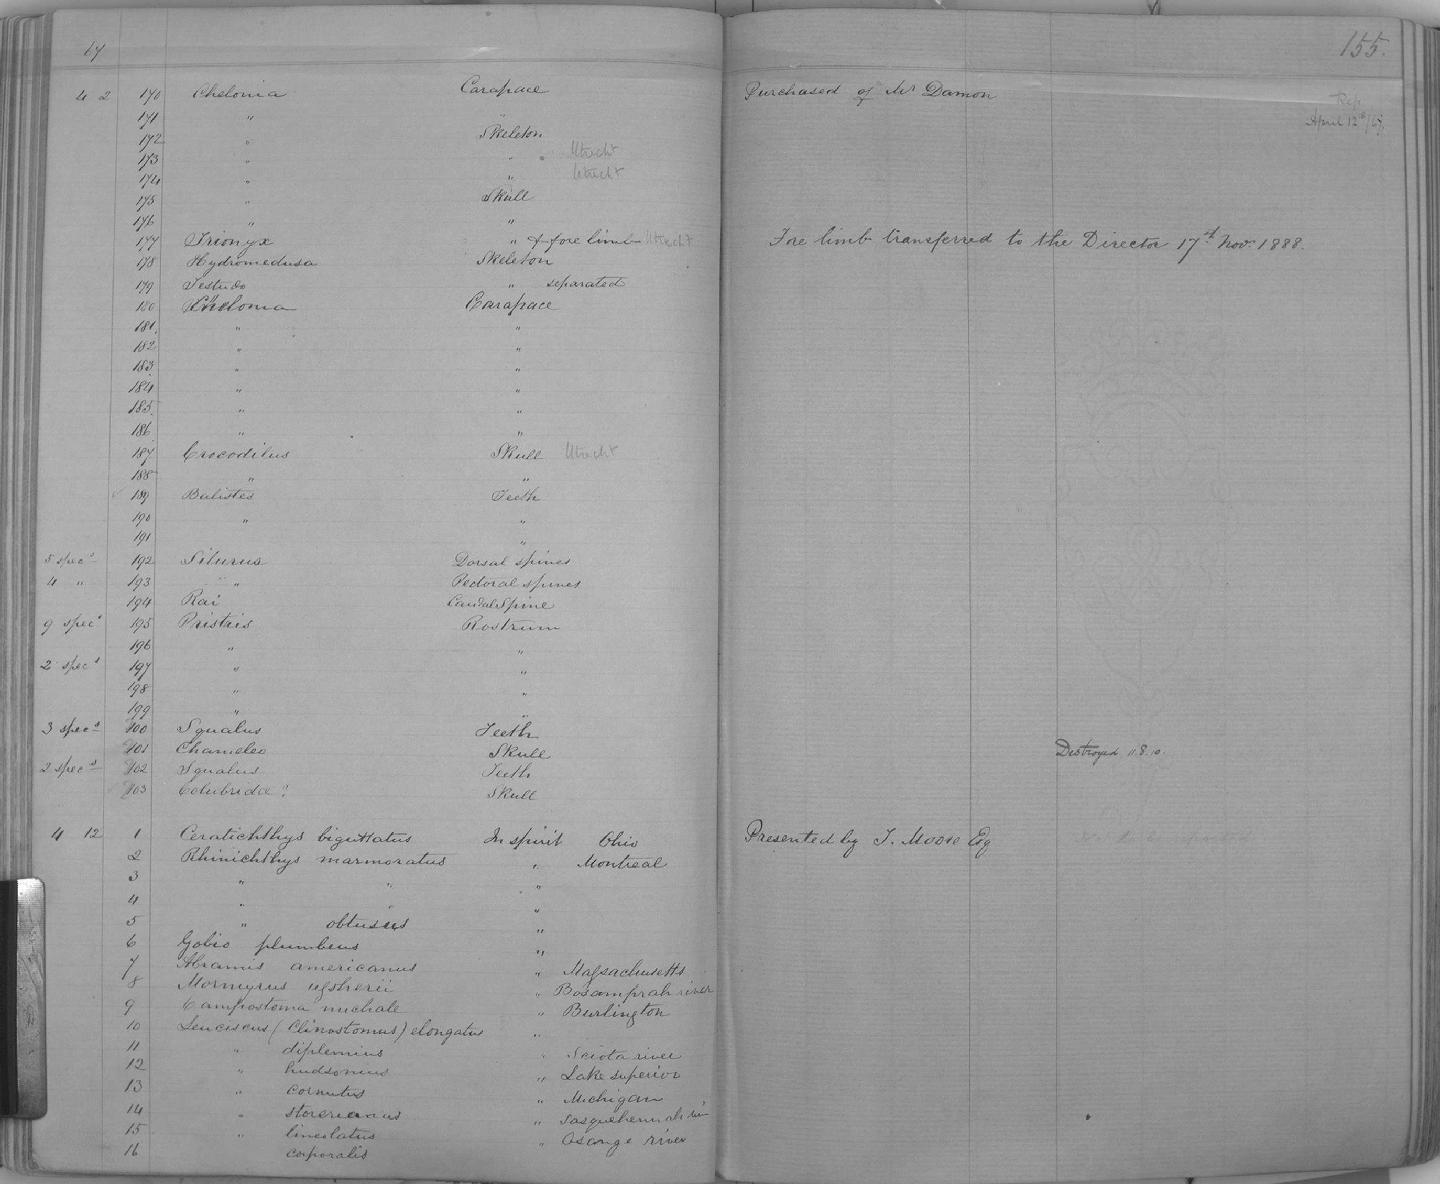 17 155.
4 2 170 Chelonia Carapace Purchased of Mr Damon Rep
171 " " April 12th/67
172 " Skeleton
173 " " Utrecht
174 " " Utrecht
175 " Skull
176 " "
177 Trionyx " & fore limb Utrecht Fore limb transferred to the Director 17th Nov. 1888.
178 Hydromedusa Skeleton
179 Testudo " separated
180 Chelonia Carapace
181. " "
182 " "
183 " "
184 " "
185. " "
186 " "
187 Crocodilus Skull Utrecht
188 " "
189 Balistes Teeth
190 " "
191 "
5 specs 192 Silurus Dorsal spines
4 " 193 " " Pectoral spines
194 Rai Caudal Spine
9 specs 195 Pristris Rostrum
196 " "
2 specs 197 " "
198 " "
199 " "
3 specs 200 Squalus Teeth
201 Chameleo Skull Destroyed 11.8.10.
2 specs 202 Squalus Teeth
203 Colubridæ? Skull
4 12 1 Ceratichthys biguttatus In spirit Ohio Presented by T. Moore Esq
2 Rhinichthys marmoratus " Montreal
3 " " "
4 " " "
5 " obtusus "
6 Gobio plumbeus "
7 Abramis americanus " Massachusetts
8 Mormyrus " river
9 Campostoma nuchale " Burlington
10 Leuciscus (Clinostomus) elongatus "
11 " diplemius " Sciota river
12 " hudsonius " Lake superior
13 " cornutus " Michigan
14 " storerianus " Sasquehennah riv
15 " lineolatus " Osange river
16 corporalis